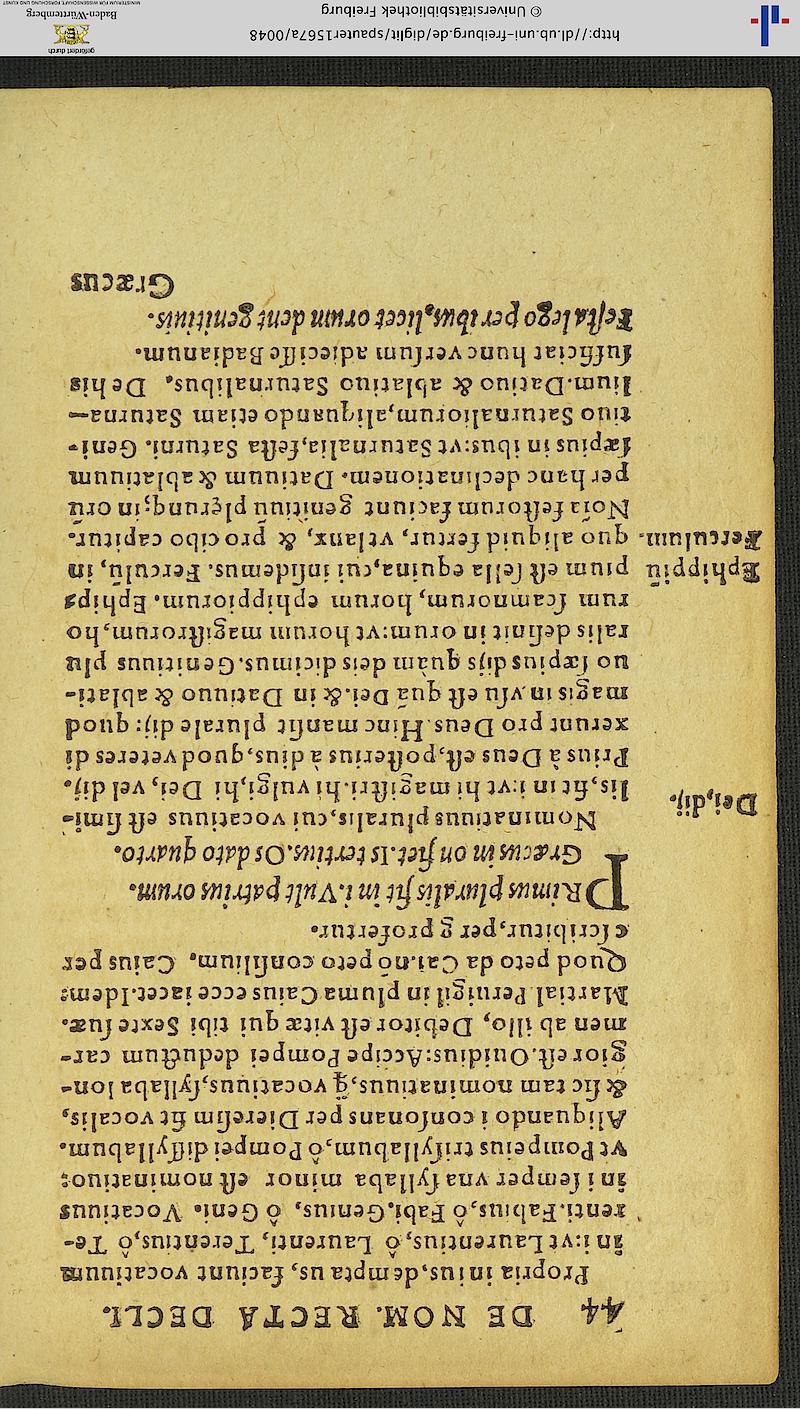 44 DE NOM. RECTA DECLI.
Propria in ius, dempta us, faciunt vocatiuum
in i: vt Laurentius, ô Laurenti, Terentius, ô Te-
renti. Fabius, ô Fabi. Genius, ô Geni. Vocatiuus
in i semper vna syllaba minor est nominatiuo:
Vt Pompeius trisyllabum, ô Pompei disyllabum.
Aliquando i consonans per Dieresim fit vocalis,
& sic tam nominatiuus, ꝙ vocatiuus, syllaba lon-
gior est. Ouidius: Accipe Pompei deductum car-
men ab illo, Debitor est vitæ qui tibi Sexte suæ.
Martial Peruigil in pluma Caius ecce iacet. Idem:
Quod peto da Cai: nō peto consilium. Caius per
c scribitur, per g profertur.
PRimus pluralis fit in i. Vult patrius orum.
Græcus in on fiet. Is tertius. Os dato quarto.
Nominatiuus pluralis, cui vocatiuus est simi-
lis, fit in i: vt hi magistri. hi vulgi, hi Dei, vel dij.
Dei, dij.
Prius à Deus est, posterius à dius, quod veteres di
xerunt pro Deus. Hinc mansit plurale dij: quod
magis in vsu est quā Dei. & in Datiuo & ablati-
uo sæpius dijs quàm deis dicimus. Genitiuus plu
ralis definit in orum: vt horum magistrorum, ho
rum scamnorum, horum ephippiorum. Ephip
pium est sella equina, cui insidemus. Ferculū, in
Ephippiū
quo aliquid fertur, vt lanx, & pro cibo capitur.
Ferculum.
Noīa festorum faciunt genitiuū plerunq; in orū
per hanc declinationem. Datiuum & ablatiuum
sæpius in ibus: vt Saturnalia, festa Saturni. Geni-
tiuo Saturnaliorum, aliquando etiam Saturna-
lium. Datiuo & ablatiuo Saturnalibus. De his
sufficiat hunc versum adiecisse Badianum.
Festa lego per ibus, licet orum dent genitiuis.
Græcus
http://dl.ub.uni-freiburg.de/diglit/spauter1567a/0048
© Universitätsbibliothek Freiburg
gefördert durch
Baden-Württemberg
MINISTERIUM FÜR WISSENSCHAFT, FORSCHUNG UND KUNST